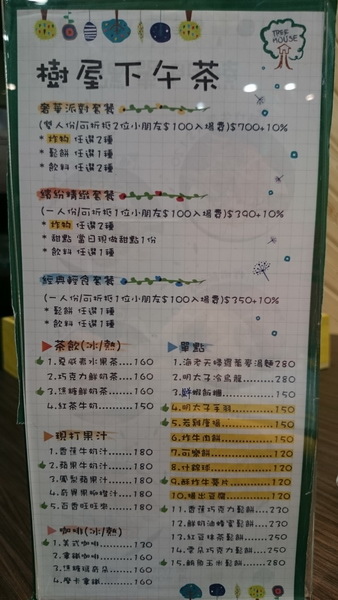 TREE HOUSE
樹屋下午茶
奢華派對套餐
(雙人份/可折抵2位小朋友$100入場費)$700+10%
* 炸物 任選2種
* 鬆餅 任選1種
* 飲料 任選2種
繽紛精緻套餐
(一人份/可折抵1位小朋友$100入場費)$390+10%
* 炸物 任選2種
* 甜點 當日現做甜點1份
* 飲料 任選1種
經典輕食套餐
(一人份/可折抵1位小朋友$100入場費)$350+10%
* 鬆餅 任選1種
* 飲料 任選1種
茶飲(冰/熱)
1.夏威夷水果茶....160
2.巧克力鮮奶茶....160
3.焦糖鮮奶茶....160
4.紅茶牛奶....150
現打果汁
1.香蕉牛奶汁......180
2.蘋果牛奶汁......180
3.鳳梨蘋果汁......180
4.奇異果柳橙汁...180
5.百香旺旺樂......180
咖啡(冰/熱)
1.美式咖啡........130
2.拿鐵咖啡........160
3.焦糖瑪奇朵.....160
4.摩卡拿鐵........160
單點
280
2.明大子冷烏龍.......280
150
4.明大子羊羽.......150
150
6.炸牛肉餅.......150
7.可樂餅.......120
8.什錦球.......120
9.酥炸牛蒡片.......120
10.揚出豆腐.......120
11.香蕉巧克力鬆餅....230
12.鮮奶油蜂蜜鬆餅....230
13.紅豆抹茶鬆餅.......250
14.雲朵巧克力鬆餅....250
15.鮪魚玉米鬆餅.......280